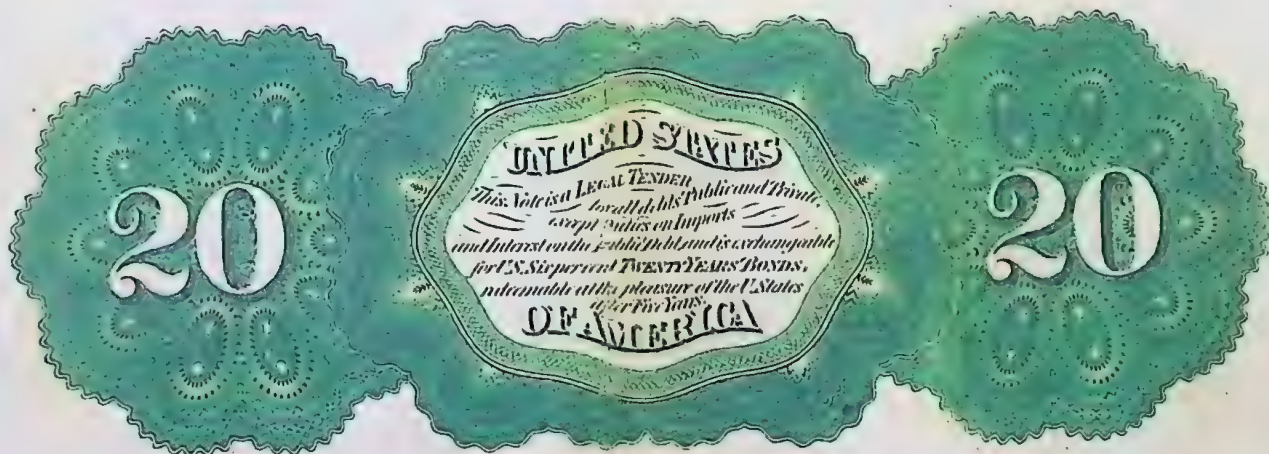 20
UNITED STATES
This Note is a LEGAL TENDER
for all debts Public and Private,
except Duties on Imports
and Interest on the Public Debt, and is exchangeable
for U.S. Six per cent TWENTY YEARS BONDS,
redeemable at the pleasure of the U. States
after Five Years.
OF AMERICA
20